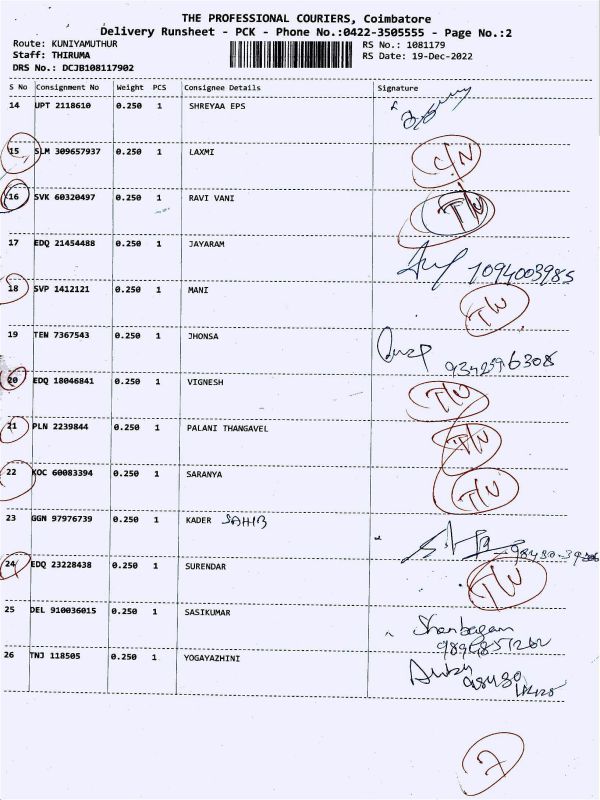 THE PROFESSIONAL COURIERS, Coimbatore
Delivery Runsheet - PCK - Phone No.:0422-3505555 - Page No.:2
Route: KUNIYAMUTHUR RS No.: 1081179
Staff: THIRUMA RS Date: 19-Dec-2022
DRS No.: DCJB108117902
S No Consignment No Weight PCS Consignee Details Signature
14 UPT 2118610 0.250 1 SHREYAA EPS
15 SLM 309657937 0.250 1 LAXMI
16 SVK 60320497 0.250 1 RAVI VANI
17 EDQ 21454488 0.250 1 JAYARAM 1094003985
18 SVP 1412121 0.250 1 MANI
19 TEN 7367543 0.250 1 JHONSA
20 EDQ 18046841 0.250 1 VIGNESH
21 PLN 2239844 0.250 1 PALANI THANGAVEL
22 KOC 60083394 0.250 1 SARANYA
23 GGN 97976739 0.250 1 KADER SAHIB
24 EDQ 23228438 0.250 1 SURENDAR
25 DEL 910036015 0.250 1 SASIKUMAR
26 TNJ 118505 0.250 1 YOGAYAZHINI
7